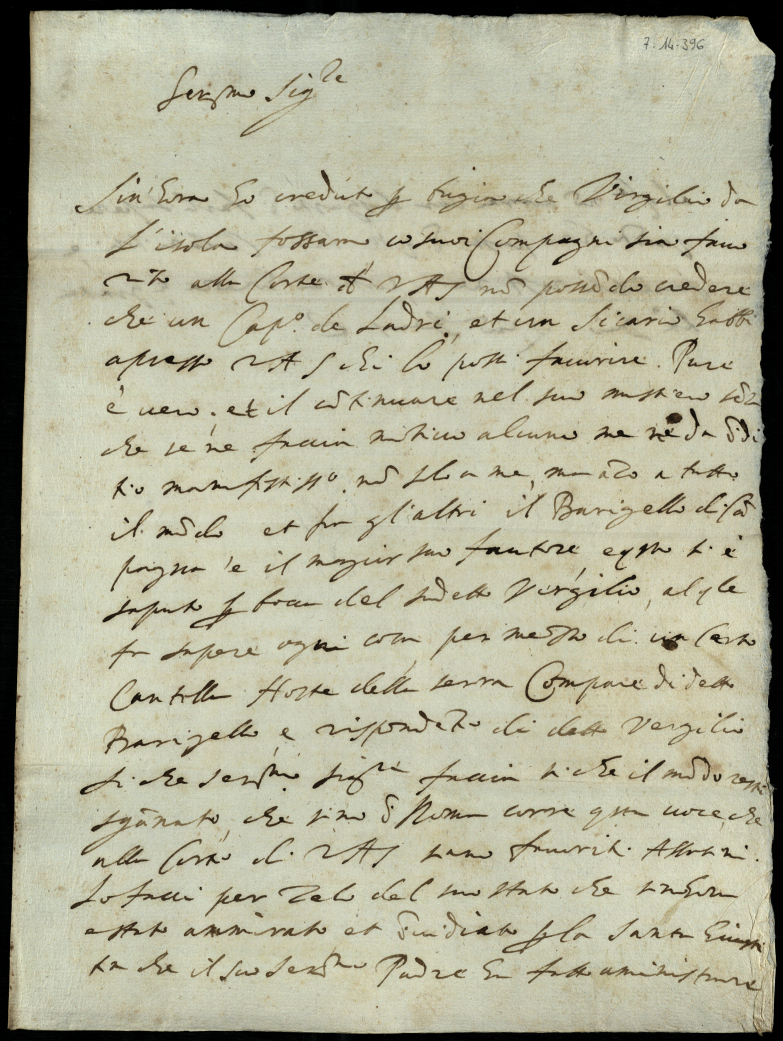 7-14-396
Sermo Sigre
Sin'hora ho creduto p bugia che Virgilio da
L'isola fossara co suoi Compagni sia favo
rito alla Corte di VAS nō possēdo credere
che un Capo. de Ladri, et un Sicario habbi
apresso VAS chi lo possi favorire. Pure
è vero, et il cōtinuare nel suo mestiero sēza
che se ne faccia motivo alcuno me ne da īdi
tio manifestisso. nō solo a me, ma āco a tutto
il mōdo et fra gli altri il Barigello di cā
pagna è il magior suo fautore, e qsto si è
saputo p bocca del sudetto Vergilio, al qle
fa sapere ogni cosa per mezzo di un certo
Hoste della terra Compare di detto
Barigello, e di detto Vergilio
si che sermo sigre faccia si che il mōdo resti
sgānato, che sino ī Roma corre qsta voce, che
alla Corte di VAS siano favoriti Assasini.
Lo facci per zelo del suo stato che sin hora
è stato ammirato et īvidiato p la santa Giusti
tia che il suo sermo Padre ha fatto aministrare